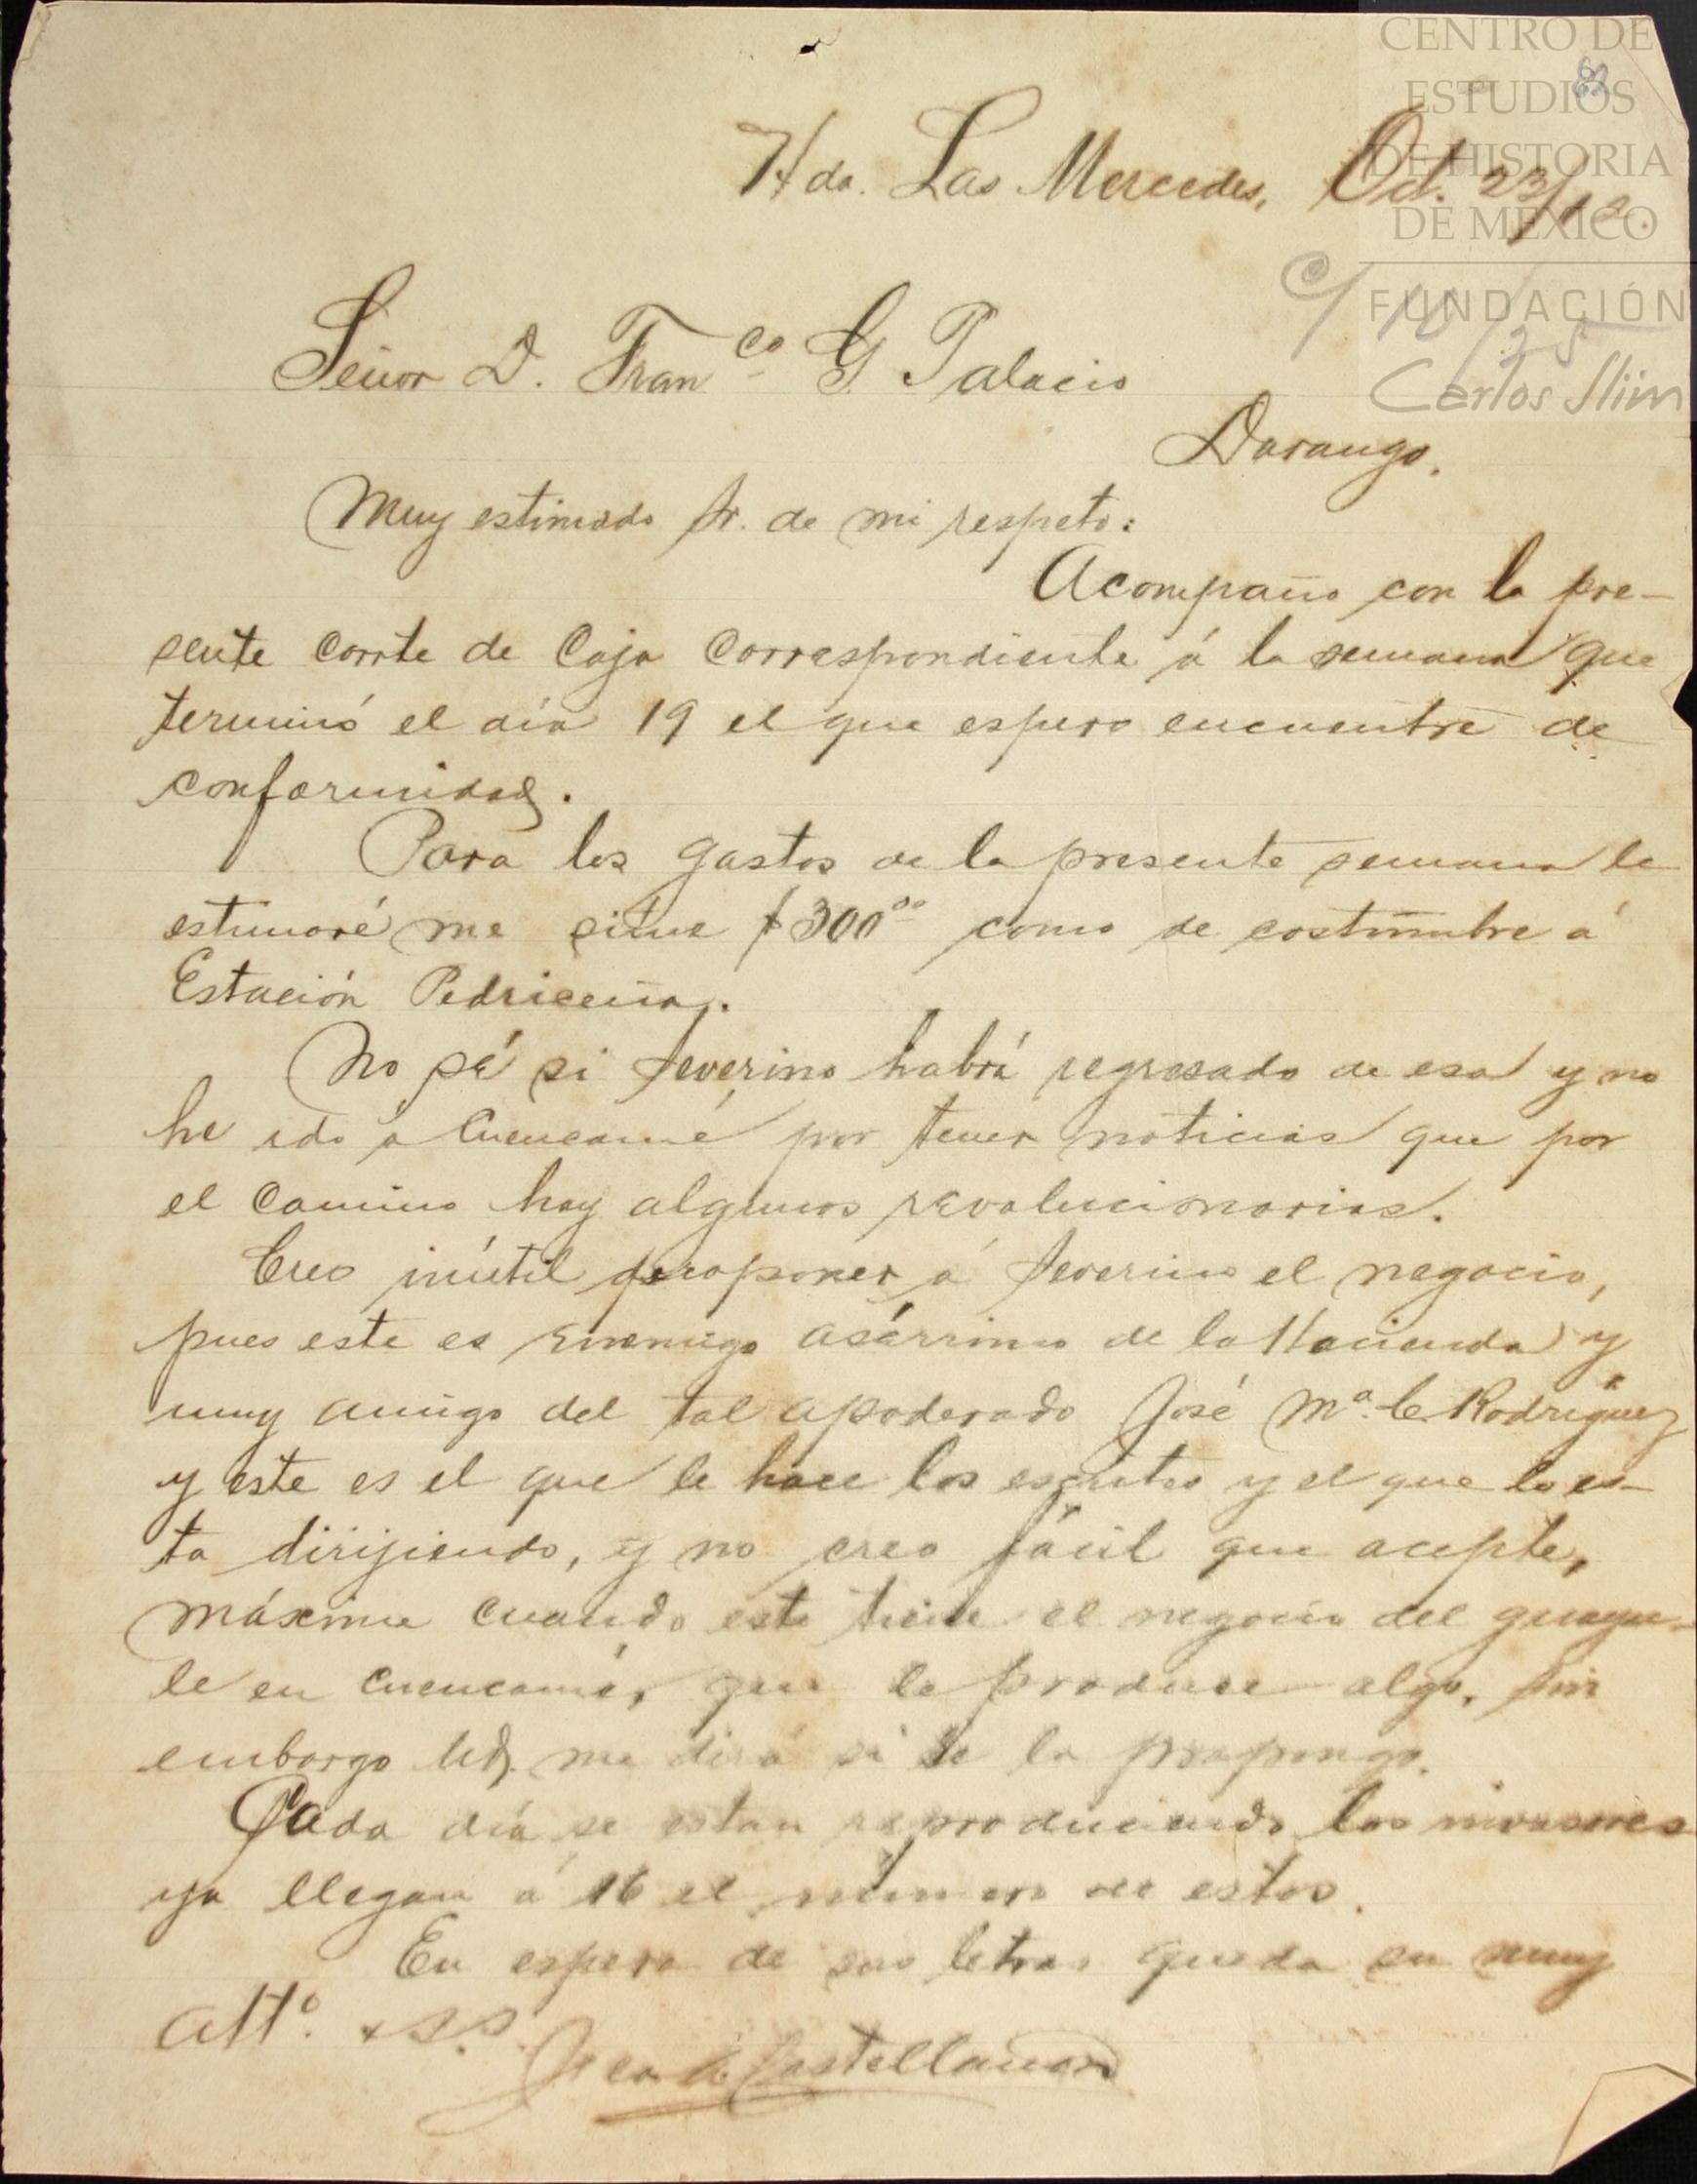 CENTRO DE
ESTUDIOS
DE HISTORIA
DE MÉXICO
FUNDACIÓN
Carlos Slim
Hda. Las Mercedes, Oct. 23/12.
C/ 10/25
Señor D. Franco G. Palacio
Durango.
Muy estimado Sr. de mi respeto:
Acompaño con la pre-
sente Corte de Caja Correspondiente á la semana que
terminó el día 19 el que espero encuentre de
conformidad.
Para los gastos de la presente semana le
estimaré me situe $300.00 como de costumbre á
Estación Pedriceña.
No sé si Severino habrá regresado de esa y no
he ido á Cuencamé por tener noticias que por
el Camino hay algunos revolucionarios.
Creo inútil proponer á Severino el negocio,
pues este es enemigo acérrimo de la Hacienda y
muy amigo del tal apoderado José Ma. C. Rodríguez
y este es el que le hace los escritos y el que lo es-
ta dirijiendo, y no creo fácil que acepte,
máxime cuando este tiene el negocio del guayu-
le en Cuencamé, que le produce algo, sin
embargo Ud. me dirá si se lo propongo.
Cada día se estan reproduciendo los invasores
ya llegan á 16 el número de estos.
En espera de sus letras queda su muy
Atto. y S.S.
Castellanos